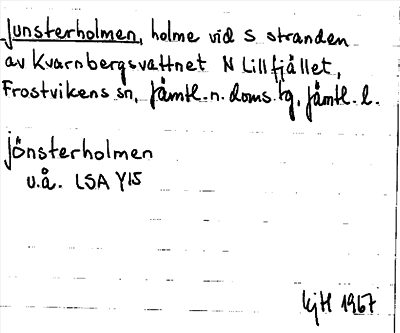 Junsterholmen, holme vid S stranden
av Kvarnbergsvattnet N Lillfjället,
Frostvikens sn, Jämtl. n. doms. tg, Jämtl. l.
Jönsterholmen
u.å. LSA Y15
KjH 1967